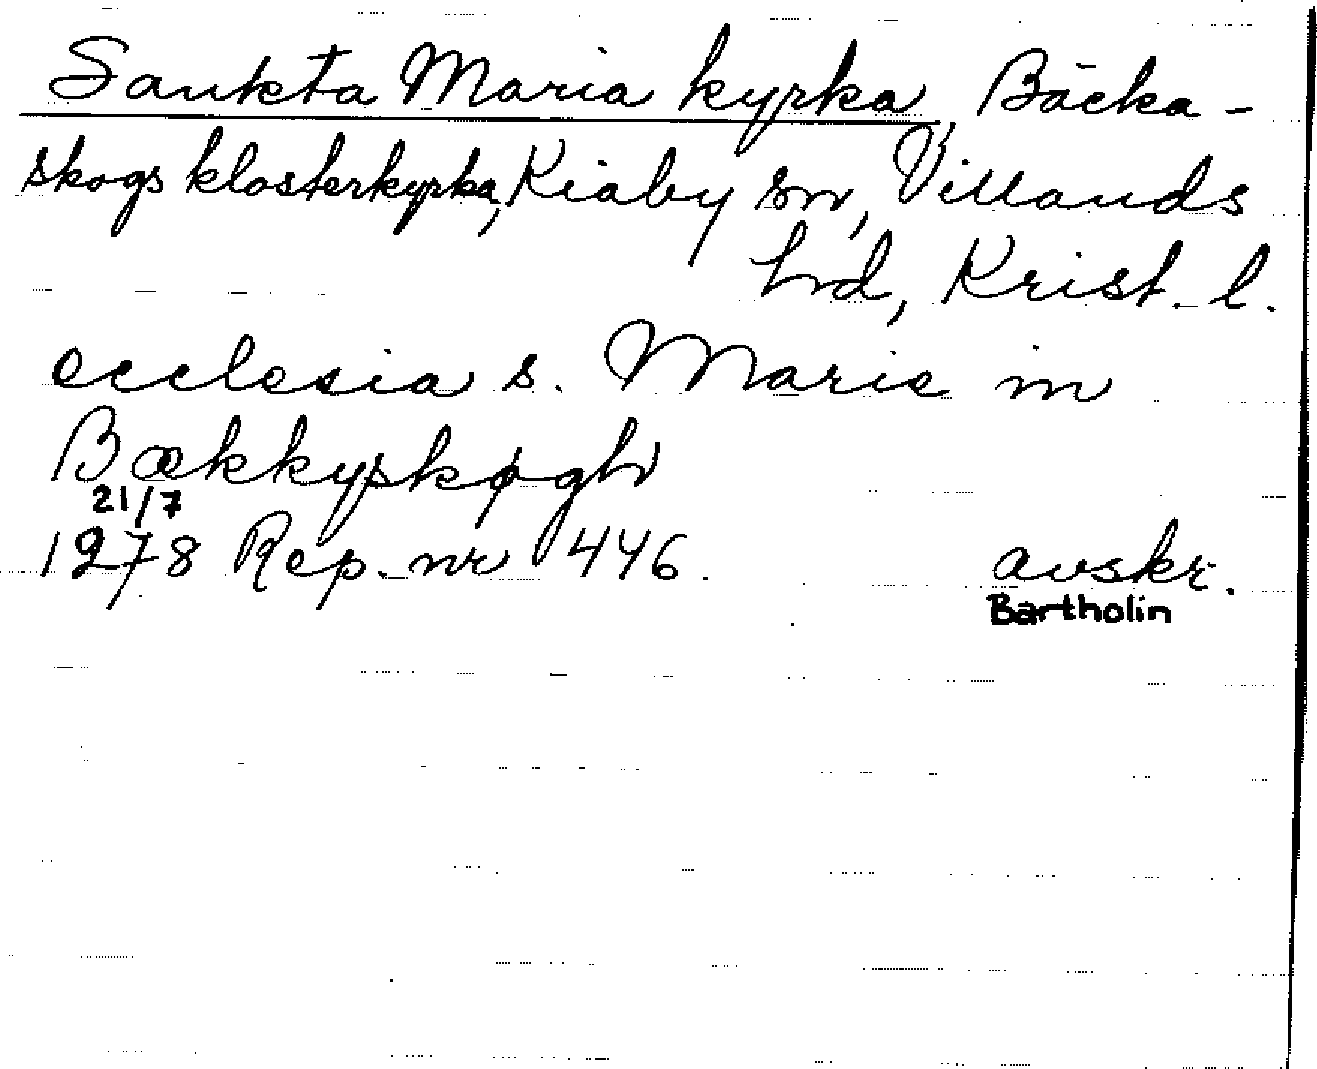 Sankta Maria kyrka, Bäcka-
skogs klosterkyrka, Kiaby sn, Villands
hd, Krist. l.
ecclesia s. Marie in
Bækkyskøgh
21/7
1278 Rep. nr 446. avskr.
Bartholin